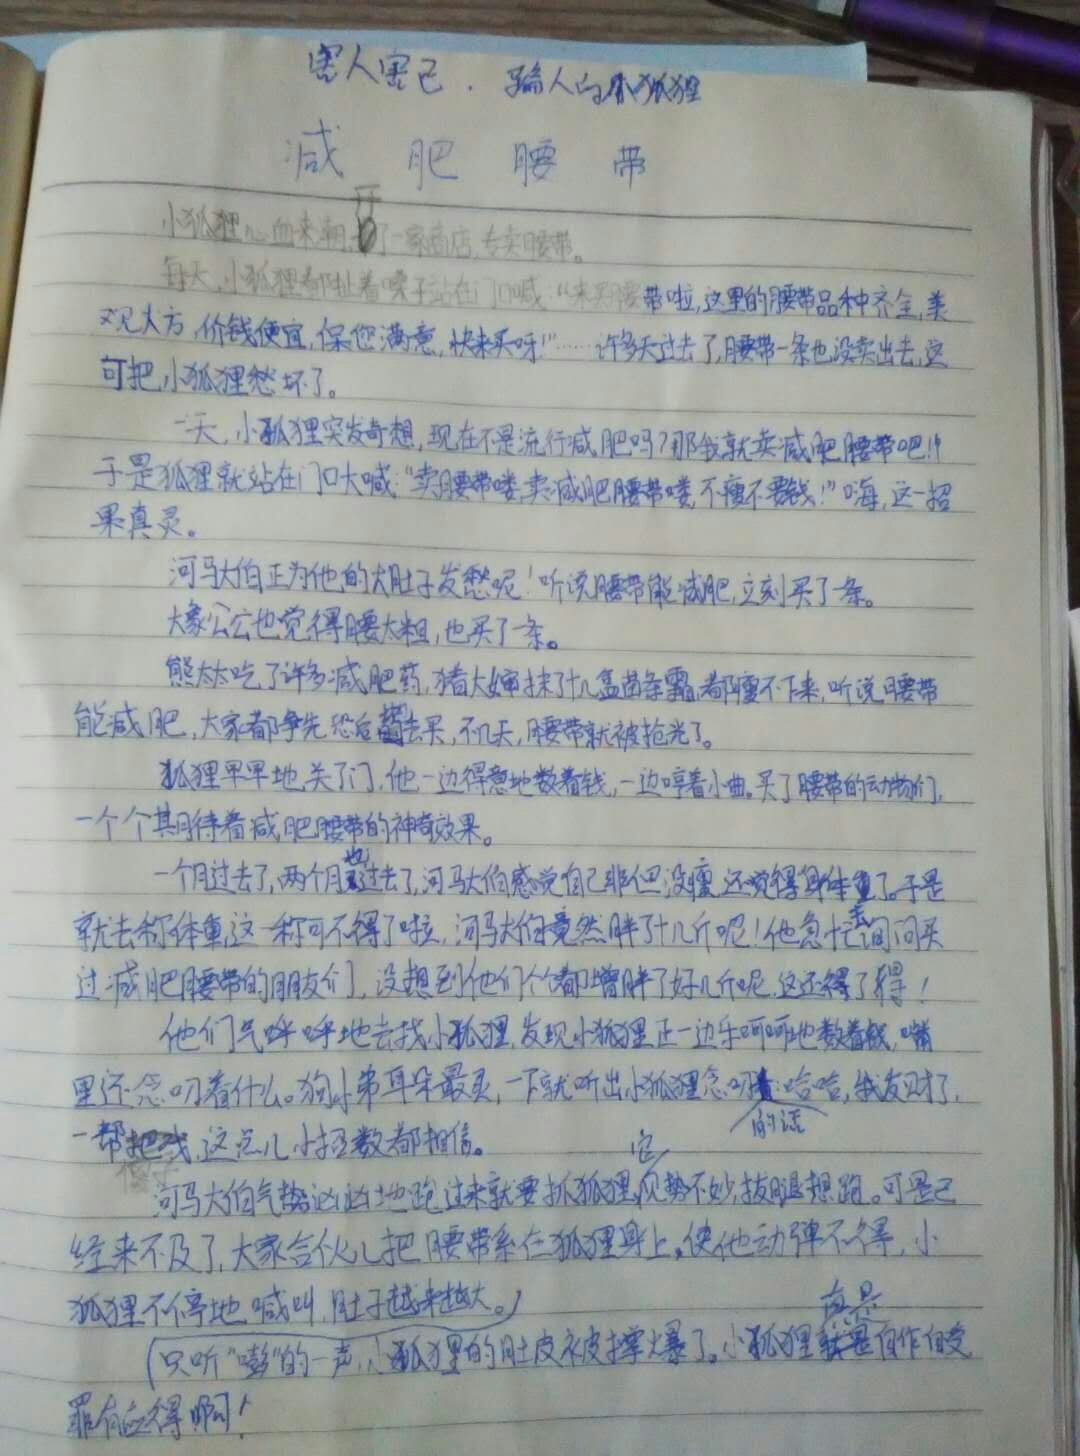 害人害己.骗人的小狐狸
减肥腰带
小狐狸心血来潮,开了一家商店,专卖腰带。
每天,小狐狸都扯着嗓子站在门口喊:“来买腰带啦,这里的腰带品种齐全,美
观大方,价钱便宜,保您满意,快来买呀!”……许多天过去了,腰带一条也没卖出去,这
可把小狐狸愁坏了。
一天,小狐狸突发奇想,现在不是流行减肥吗?那我就卖减肥腰带吧!
于是狐狸就站在门口大喊:“卖腰带喽,卖减肥腰带喽,不瘦不要钱!”嗨,这一招
果真灵。
河马大伯正为他的大肚子发愁呢!听说腰带能减肥,立刻买了一条。
大象公公也觉得腰太粗,也买了一条。
熊太太吃了许多减肥药,猪大婶抹了十几盒苗条霜,都瘦不下来,听说腰带
能减肥,大家都争先恐后去买,不几天,腰带就被抢光了。
狐狸早早地关了门,他一边得意地数着钱,一边哼着小曲。买了腰带的动物们,
一个个期待着减肥腰带的神奇效果。
一个月过去了,两个月也过去了,河马大伯感觉自己非但没瘦,还觉得身体重了。于是
就去称体重,这一称可不得了啦,河马大伯竟然胖了十几斤呢!他急忙去询问买
过减肥腰带的朋友们,没想到他们个个都增胖了好几斤呢,这还得了得!
他们气呼呼地去找小狐狸,发现小狐狸正一边乐呵呵地数着钱,嘴
里还念叨着什么。狗小弟耳朵最灵,一下就听出小狐狸念叨的话:哈哈,我发财了,
一帮傻子,这点儿小招数都相信。
河马大伯气势汹汹地跑过来就要抓狐狸,它见势不妙,拔腿想跑。可是已
经来不及了,大家合伙儿把腰带系在狐狸身上,使他动弹不得,小
狐狸不停地喊叫,肚子越来越大。
(只听“嘭”的一声,小狐狸的肚皮被撑爆了。)小狐狸真是自作自受
罪有应得啊!